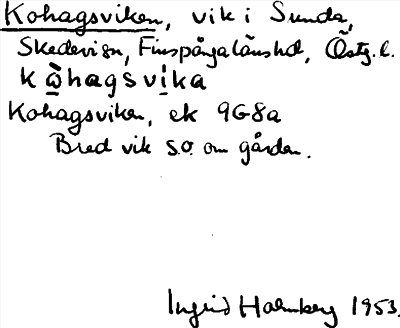 Kohagsviken, vik i Sunda,
Skedevi sn, Finspångalänshd, Östg.l.
kωhagsvika
Kohagsviken, ek 9G8a
Bred vik s.o. om gården.
Ingrid Holmberg 1953.